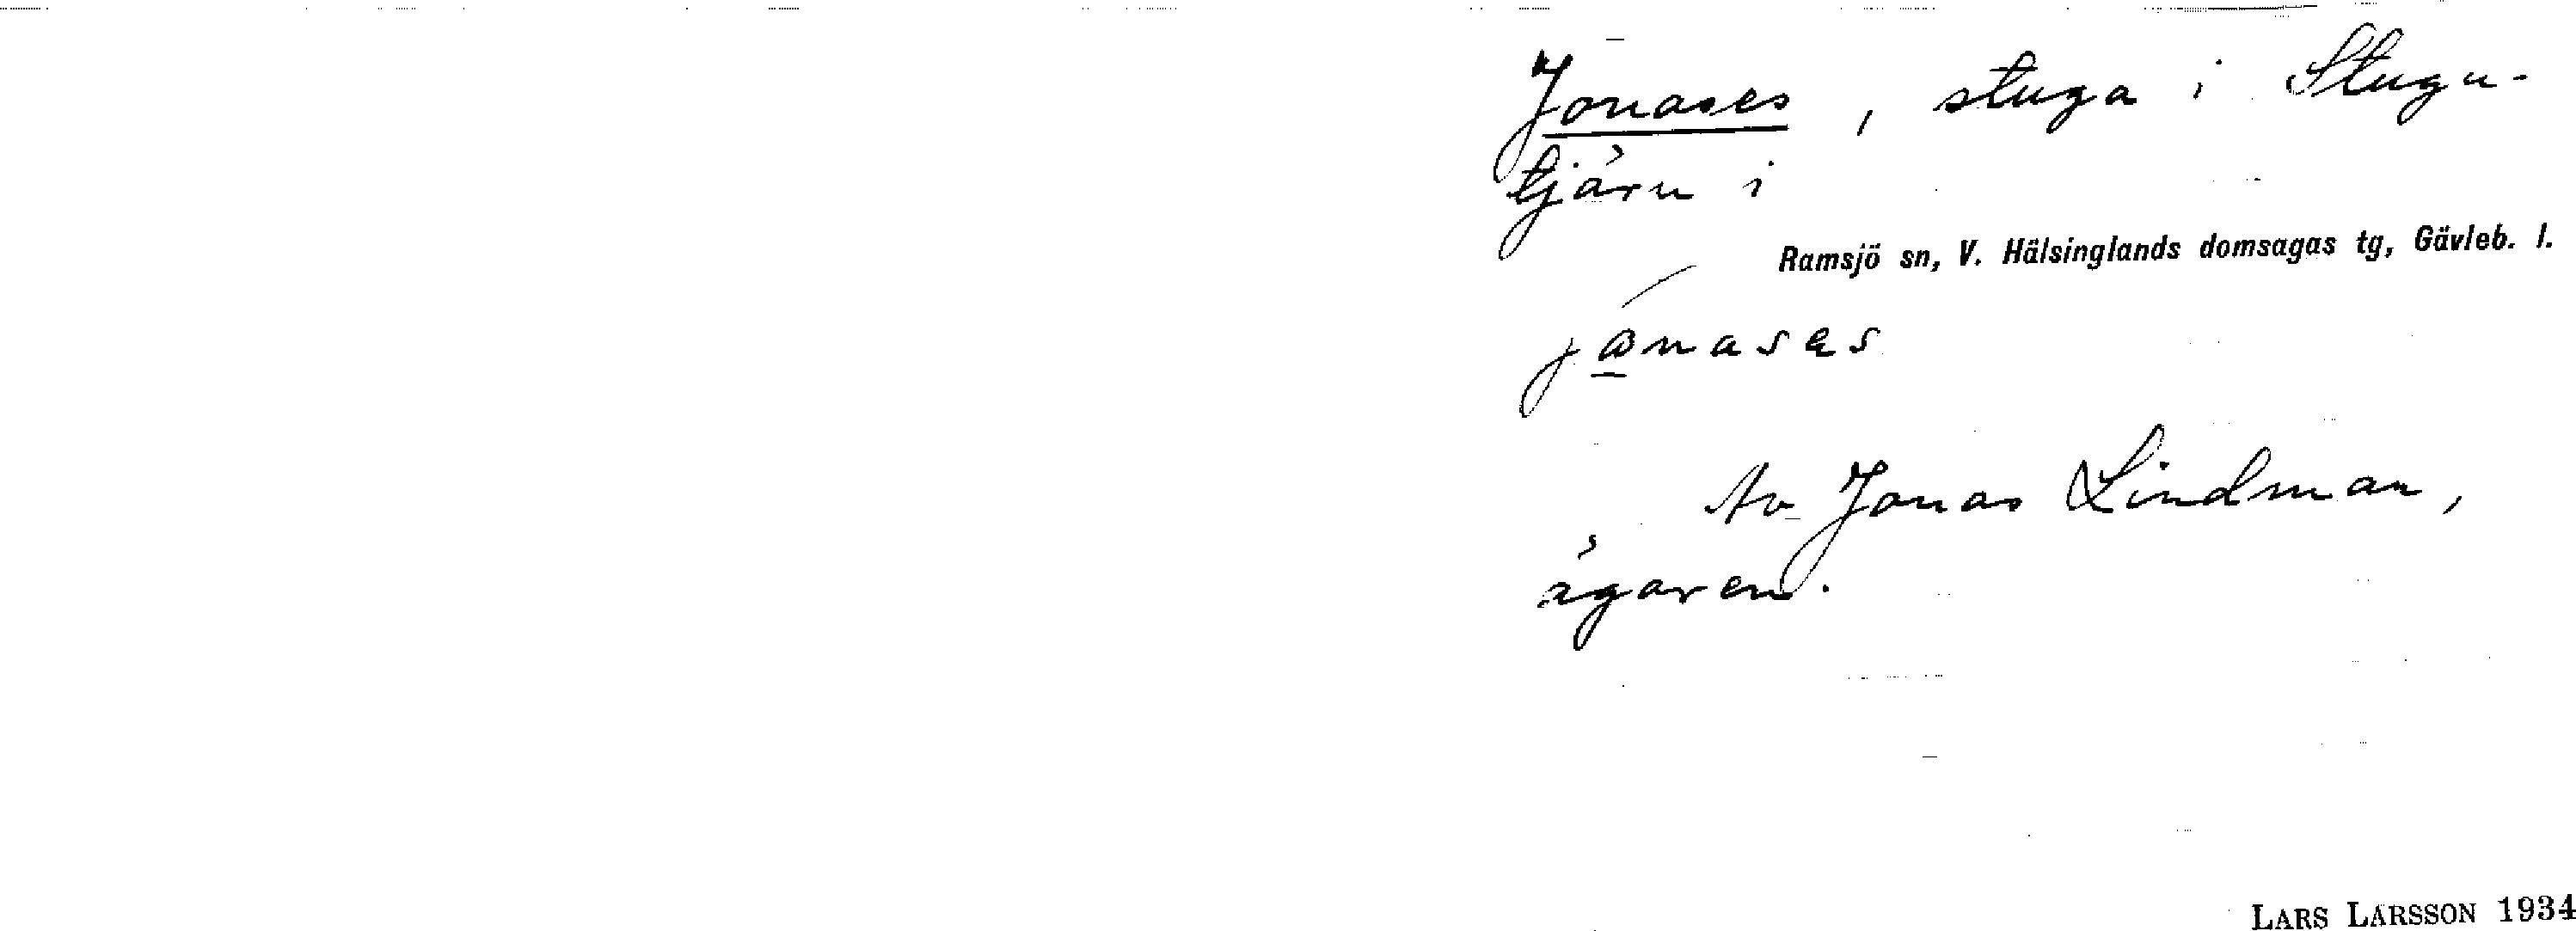 Jonases, stuga i Stugu-
tjärn i
Ramsjö sn, V. Hälsinglands domsagas tg, Gävleb. l.
jɷnasəs
Av Jonas Lindman,
ägaren.
LARS LARSSON 1934